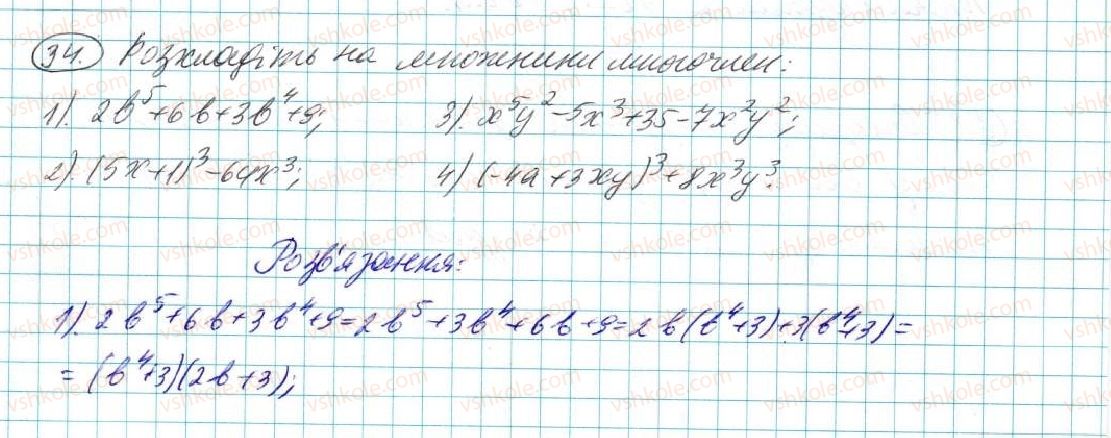 34. Розкладіть на множники многочлен:
1). 2b⁵+6b+3b⁴+9; 3). x⁵y²-5x³+35-7x²y²;
2). (5x+1)³-64x³; 4) (-4a+3xy)³+8x³y³.
Розв'язання:
1). 2b⁵+6b+3b⁴+9=2b⁵+3b⁴+6b+9=2b(b⁴+3)+3(b⁴+3)=
=(b⁴+3)(2b+3);